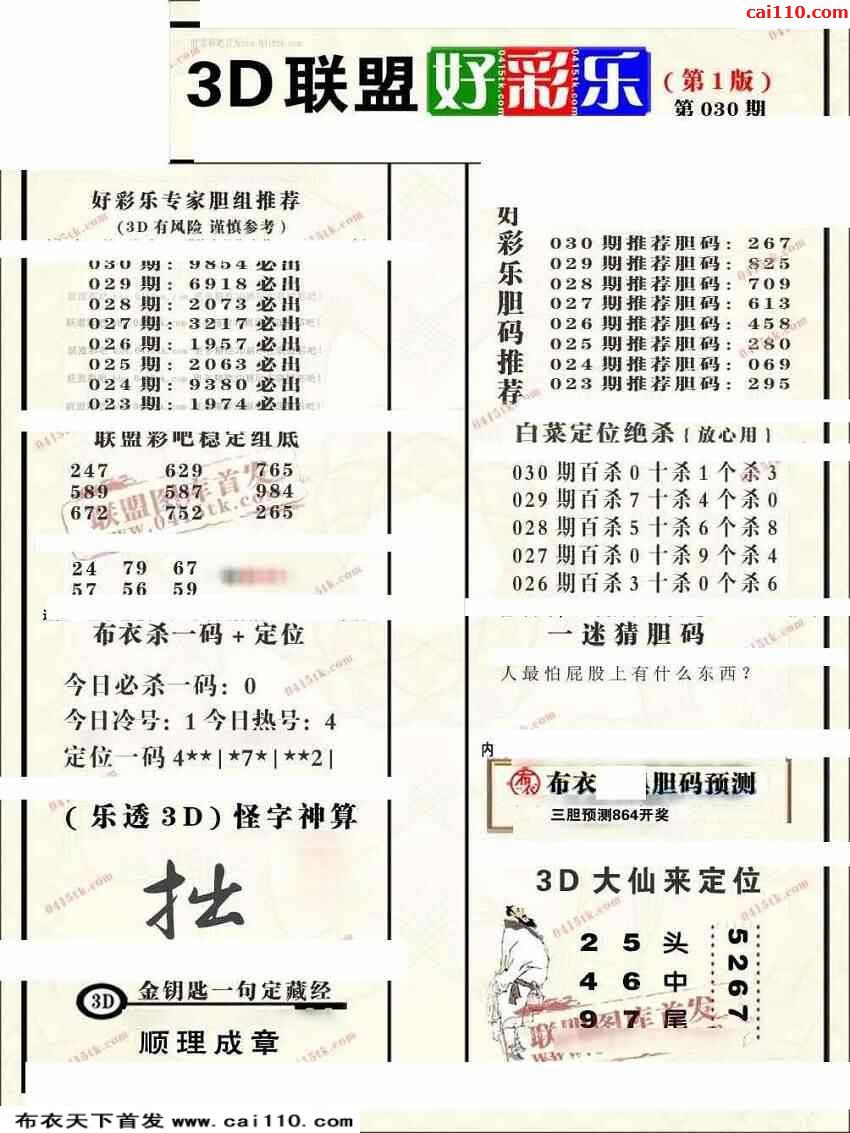 cai110.com
3D联盟好彩乐(第1版)
0415tk.com 0415tk.com 0415tk.com
第030期
好彩乐专家胆组推荐
(3D有风险 谨慎参考)
030期: 9854必出
029期: 6918必出
028期: 2073必出
027期: 3217必出
026期: 1957必出
025期: 2063必出
024期: 9380必出
023期: 1974必出
联盟彩吧稳定组底
247 629 765
589 587 984
672 752 265
联盟图库首发
www.0415tk.com
24 79 67
57 56 59
布衣杀一码+定位
今日必杀一码: 0
今日冷号: 1 今日热号: 4
定位一码 4**|*7*|**2|
(乐透3D)怪字神算
拙
3D 金钥匙一句定藏经
顺理成章
好彩乐胆码推荐
030期推荐胆码: 267
029期推荐胆码: 825
028期推荐胆码: 709
027期推荐胆码: 613
026期推荐胆码: 458
025期推荐胆码: 280
024期推荐胆码: 069
023期推荐胆码: 295
白菜定位绝杀{放心用}
030期百杀0十杀1个杀3
029期百杀7十杀4个杀0
028期百杀5十杀6个杀8
027期百杀0十杀9个杀4
026期百杀3十杀0个杀6
一迷猜胆码
人最怕屁股上有什么东西?
内
布衣 胆码预测
三胆预测864开奖
3D大仙来定位
2 5 头
4 6 中
9 7 尾
5267
联盟图库首发
0415tk.com
布衣天下首发 www.cai110.com